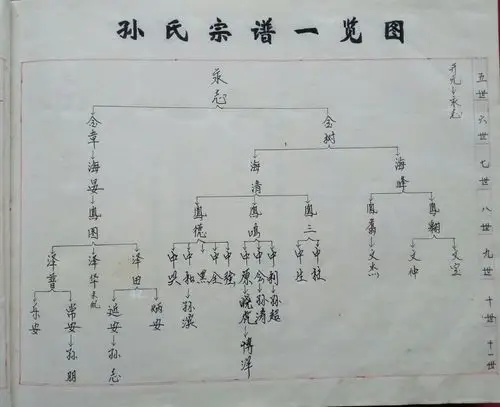 孙氏宗谱一览图
承志
金章
海晏
凤图
泽普
乐安
常安
孙明
泽华
泽田
延安
孙志
炳安
金树
海清
凤慌
中兴
中和
孙滨
中黑
中全
中发
凤鸣
中原
晓虎
博洋
中会
孙涛
中利
孙超
凤三
中生
中柱
海峰
凤嵩
文杰
凤翱
文仲
文宝
开允
承志
五世
六世
七世
八世
九世
十世
十一世